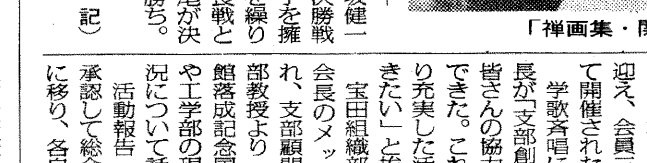 「禅画集・
健一
決勝戦
を擁
を繰り
戦と
が決
勝ち。
記）
迎え、会員
て開催された
学歌斉唱に
長が「支部創
皆さんの協力
できた。これ
り充実した活
きたい」と挨
宝田組織部
会長のメッ
れ、支部顧問
部教授より
館落成記念
や工学部の現
況について話
活動報告
承認して総会
に移り、各自